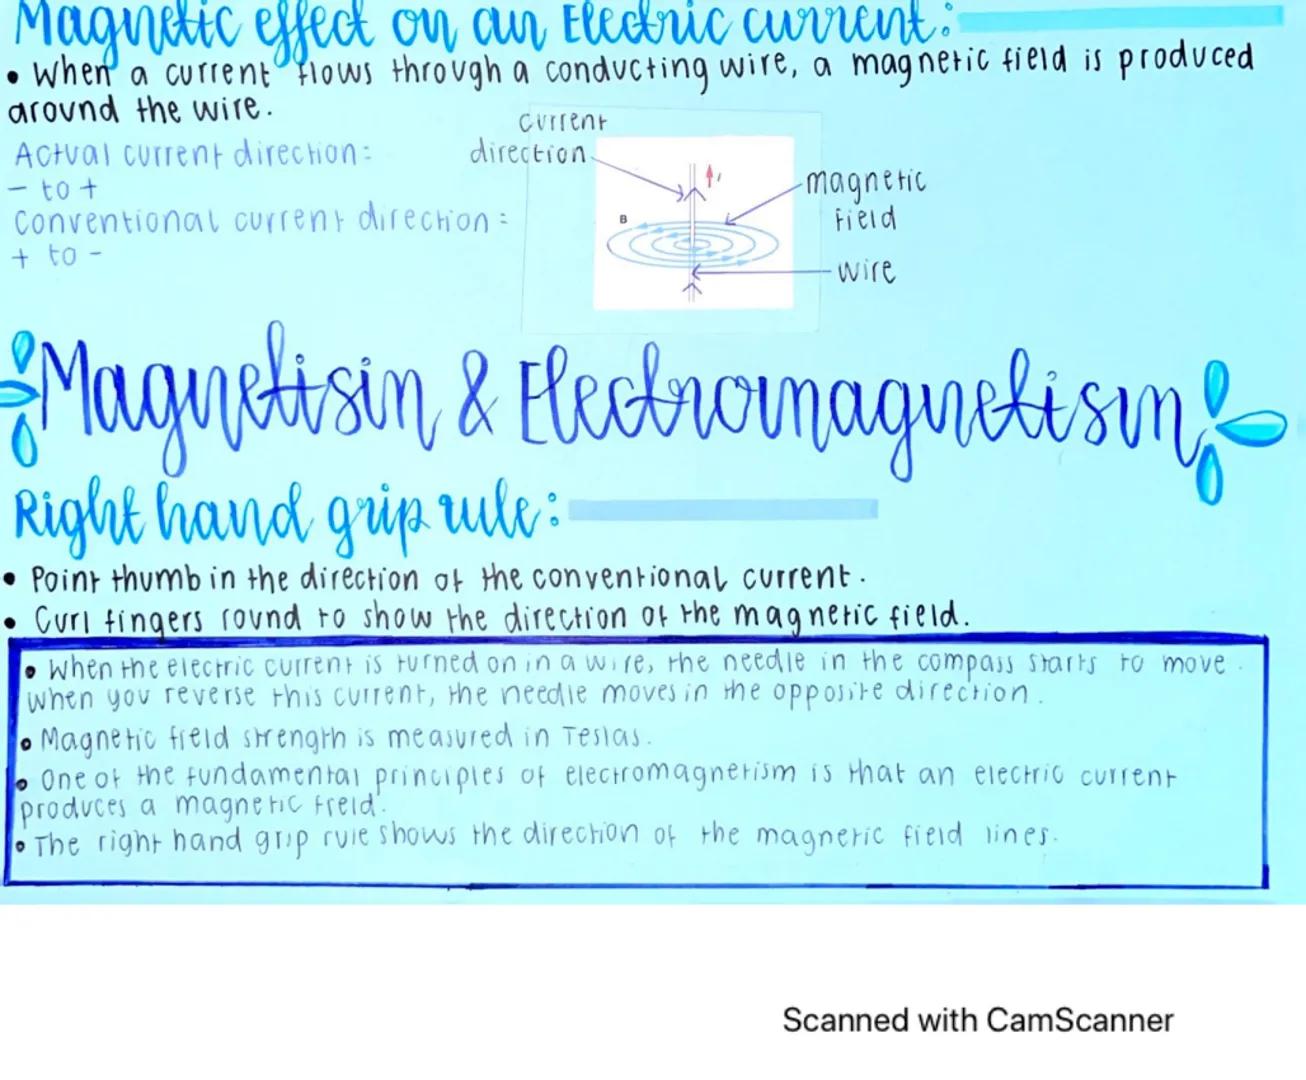 Magnetic effect on an Electric current:
• When a current flows through a conducting wire, a magnetic field is produced
around the wire.
current
direction
Actual current direction:
- to +
Conventional current direction:
+ to -
magnetic
field
B
I
wire
Magnetism & Electromagnetism
Right hand grip rule:
• Point thumb in the direction of the conventional current.
• Curl fingers round to show the direction of the magnetic field.
• When the electric current is turned on in a wire, the needle in the compass starts to move.
When you reverse this current, the needle moves in the opposite direction.
• Magnetic field strength is measured in Teslas.
• One of the fundamental principles of electromagnetism is that an electric current
produces a magnetic field.
• The right hand grip rule shows the direction of the magnetic field lines.
Scanned with CamScanner